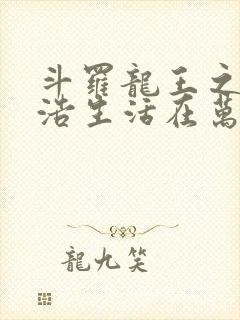 斗羅龍王之
浩生活在萬
龍九笑